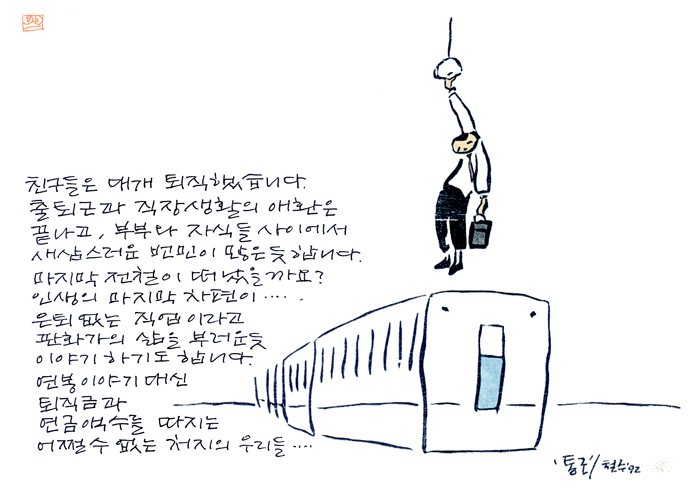 친구들은 대개 퇴직했습니다.
출퇴근과 직장생활의 애환은
끝나고, 부부와 자식들 사이에서
새삼스러운 번민이 많은듯합니다.
마지막 전철이 떠났을까요?
인생의 마지막 차편이‥‥.
은퇴 없는 직업이라고
판화가의 삶을 부러운듯
이야기 하기도 합니다.
연봉이야기 대신
퇴직금과
연금액수를 따지는
어쩔 수 없는 처지의 우리들‥‥
'통근/ 철수 '92